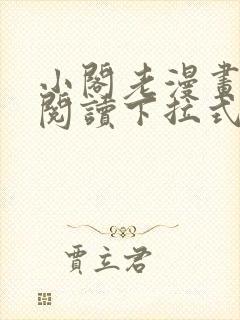 小閣老漫畫
閱讀下拉式
賈立君